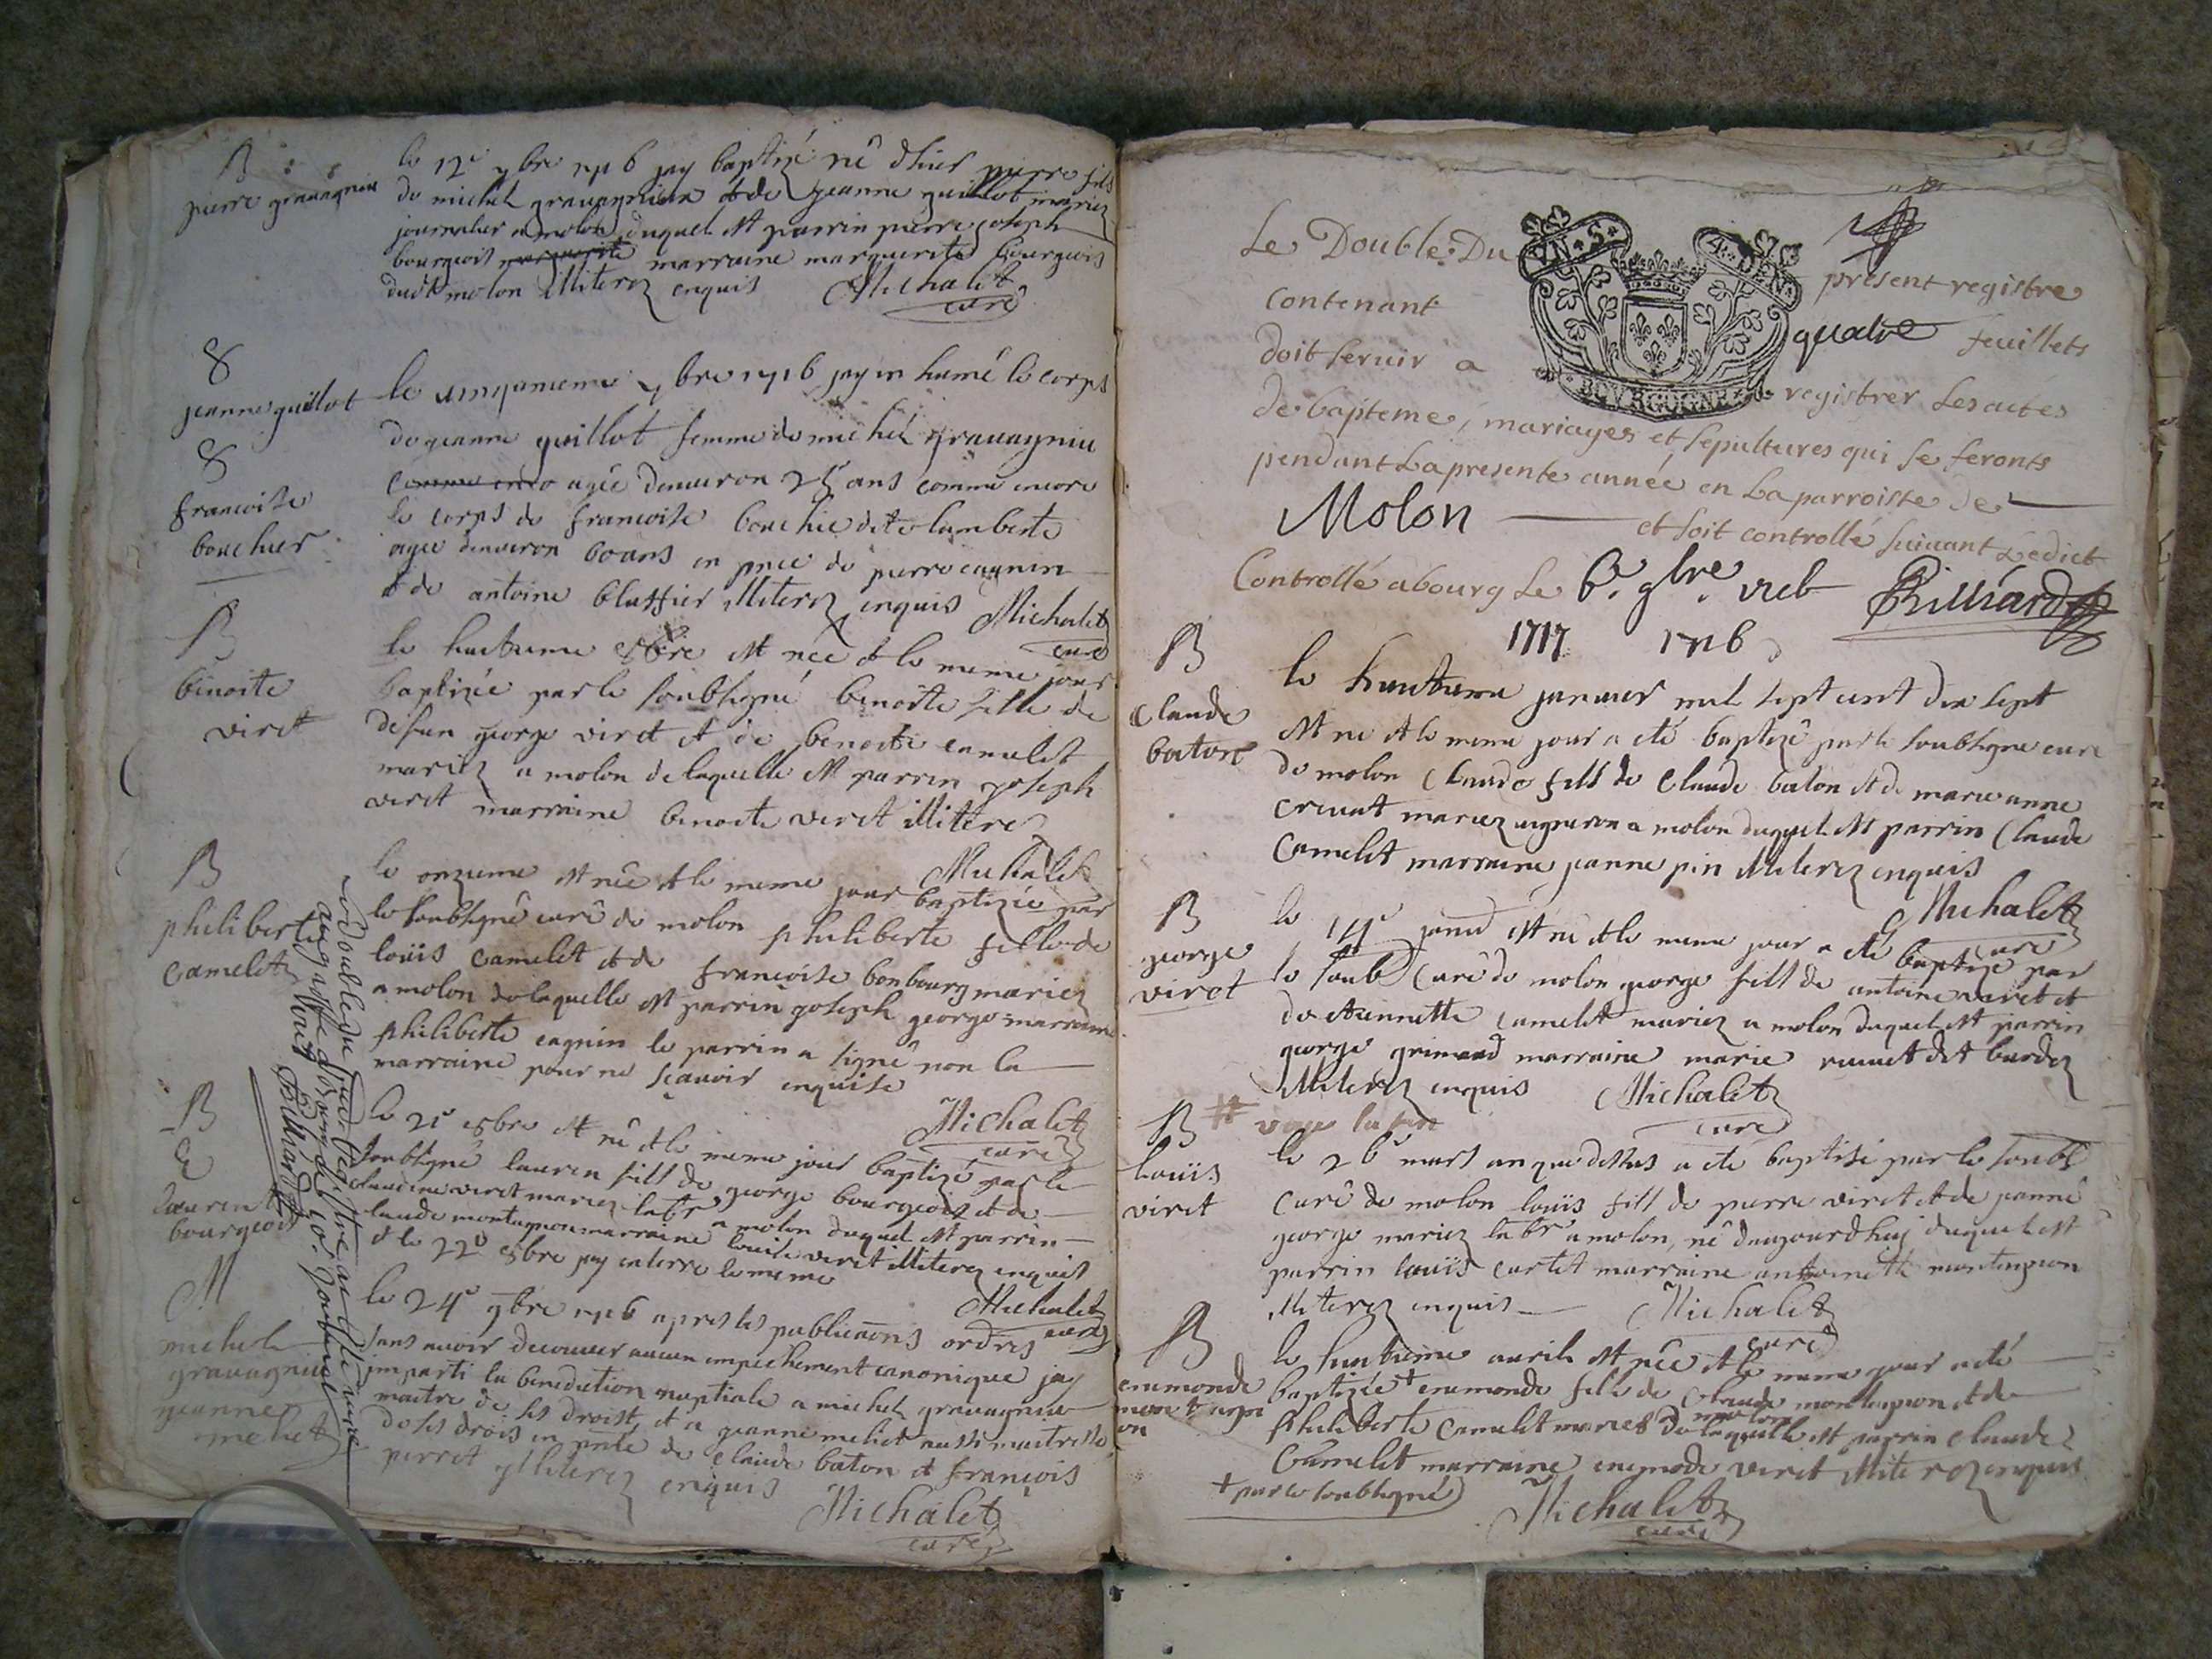 B
pierre gravagnieu
le 12e 9bre 1716 jay baptizé né dhier pierre fils
de michel gravagnieu et de jeanne guillot mariez
journalier a molon duquel est parrin pierre joseph
bourgeois marguerite marraine marguerite bourgeois
dudt molon illiterez enquis Michalet
curé
8
jeanne guillot
8
francoise
bouchier
le 9bre 1716 jay inhumé le corps
de jeanne guillot femme de michel gravagnieu
comme enco agée denviron 25 ans comme encore
le corps de francoise bouchie dite lamberte
agee denviron 60 ans en pnce de pierre cagnin
et de antoine blattier illiterez enquis Michalet
curé
B
benoite
viret
le huitieme xbre est née et le meme jour
baptizée par le soubsigné benoite fille de
defun george viret et de benoite camelet
mariez a molon de laquelle est parrin joseph
viret marraine benoite viret illitere
Michalet
B
philiberte
camelet
le onzieme est née et le meme jour baptizée par
le soubsigné curé de molon philiberte fille de
louis camelet et de francoise bonbourg mariez
a molon de laquelle est parrin joseph george marraine
philiberte cagnin le parrin a signé non la
marraine pour ne scavoir enquise
Michalet
curé
B
&
laurent
bourgeois
le 21e xbre est né et le meme jour baptizé par le
soubsigné lauren fils de george bourgeois et de
claudine viret mariez labr a molon duquel est parrin
claude montagnon marraine louise viret illiterez enquis
et le 22e xbre jay enterre le meme
Michalet
curé
M
michel
gravagnieu
jeanne
meliet
le 24e 9bre 1716 apres les publicaons ordres
sans avoir decouver aucun empechement canonique jay
imparti la benediction nuptiale a michel gravagnieu
maitre de ses droist, et a jeanne meliet aussi maitresse
de ses drois en pnce de claude baton et francois
perret illiterez enquis
Michalet
curé
le double du pnt registre a esté remis
au greffe
Le Double Du present registre
VN . S . 4 . DEN .
contenant quatre feuillets
doit servir a registrer Les actes
BOVRGOGNE
de bapteme, mariages et sepultures qui se feronts
pendant La presente année en La parroisse de
Molon et soit controllé suivant Ledict
Controllé a bourg Le 6e 9bre Billiard
1717 1716
B
Claude
baton
le huitieme janvier mil sept cent dix sept
est ne et le meme jour a eté baptizé par le soubsigne cure
de molon Claude fils de Claude baton et de marie anne
crevat mariez vigneron a molon duquel est parrin Claude
Camelet marraine jeanne pin illiterez enquis
Michalet
curé
B
george
viret
le 14e janv est né et le meme jour a eté baptizé par
le soubs Curé de molon george fils de antoine viret et
de etiennette camelet mariez a molon duquel est parrin
george grimaud marraine marie dit
illiterez enquis Michalet
curé
# voye la fin
B
louis
viret
le 26e mars an que dessus a ete baptisé par le soubs
curé de molon louis fils de pierre viret et de janne
george mariez labr a molon, né daujourdhuy duquel est
parrin louis curtet marraine antoinette montagnon
illiterez enquis Michalet
curé
B
enemonde
montagn
on
le huitieme avril est née et le meme jour a eté
baptizée + enemonde fille de Claude montagnon et de
philiberte Camelet mariez a molon de laquelle est parrin Claude
Camelet marraine enemode viret illiterez enquis
+ par le soubsigné
Michalet
curé